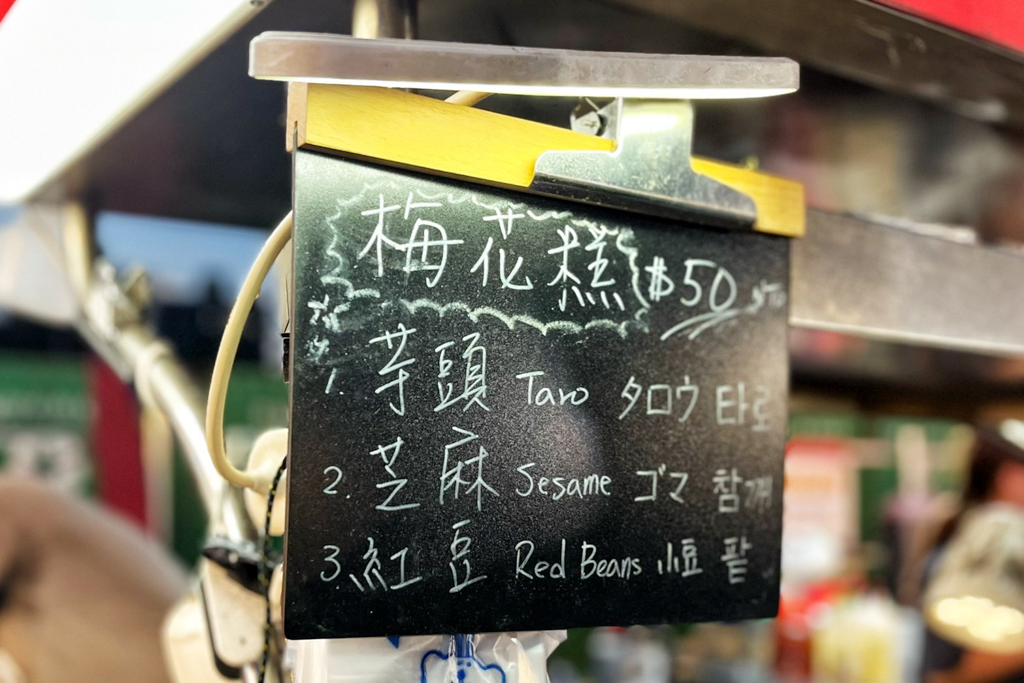 梅花糕 $50
1. 芋頭 Taro タロウ 타로
2. 芝麻 Sesame ゴマ 참깨
3. 紅豆 Red Beans 小豆 팥